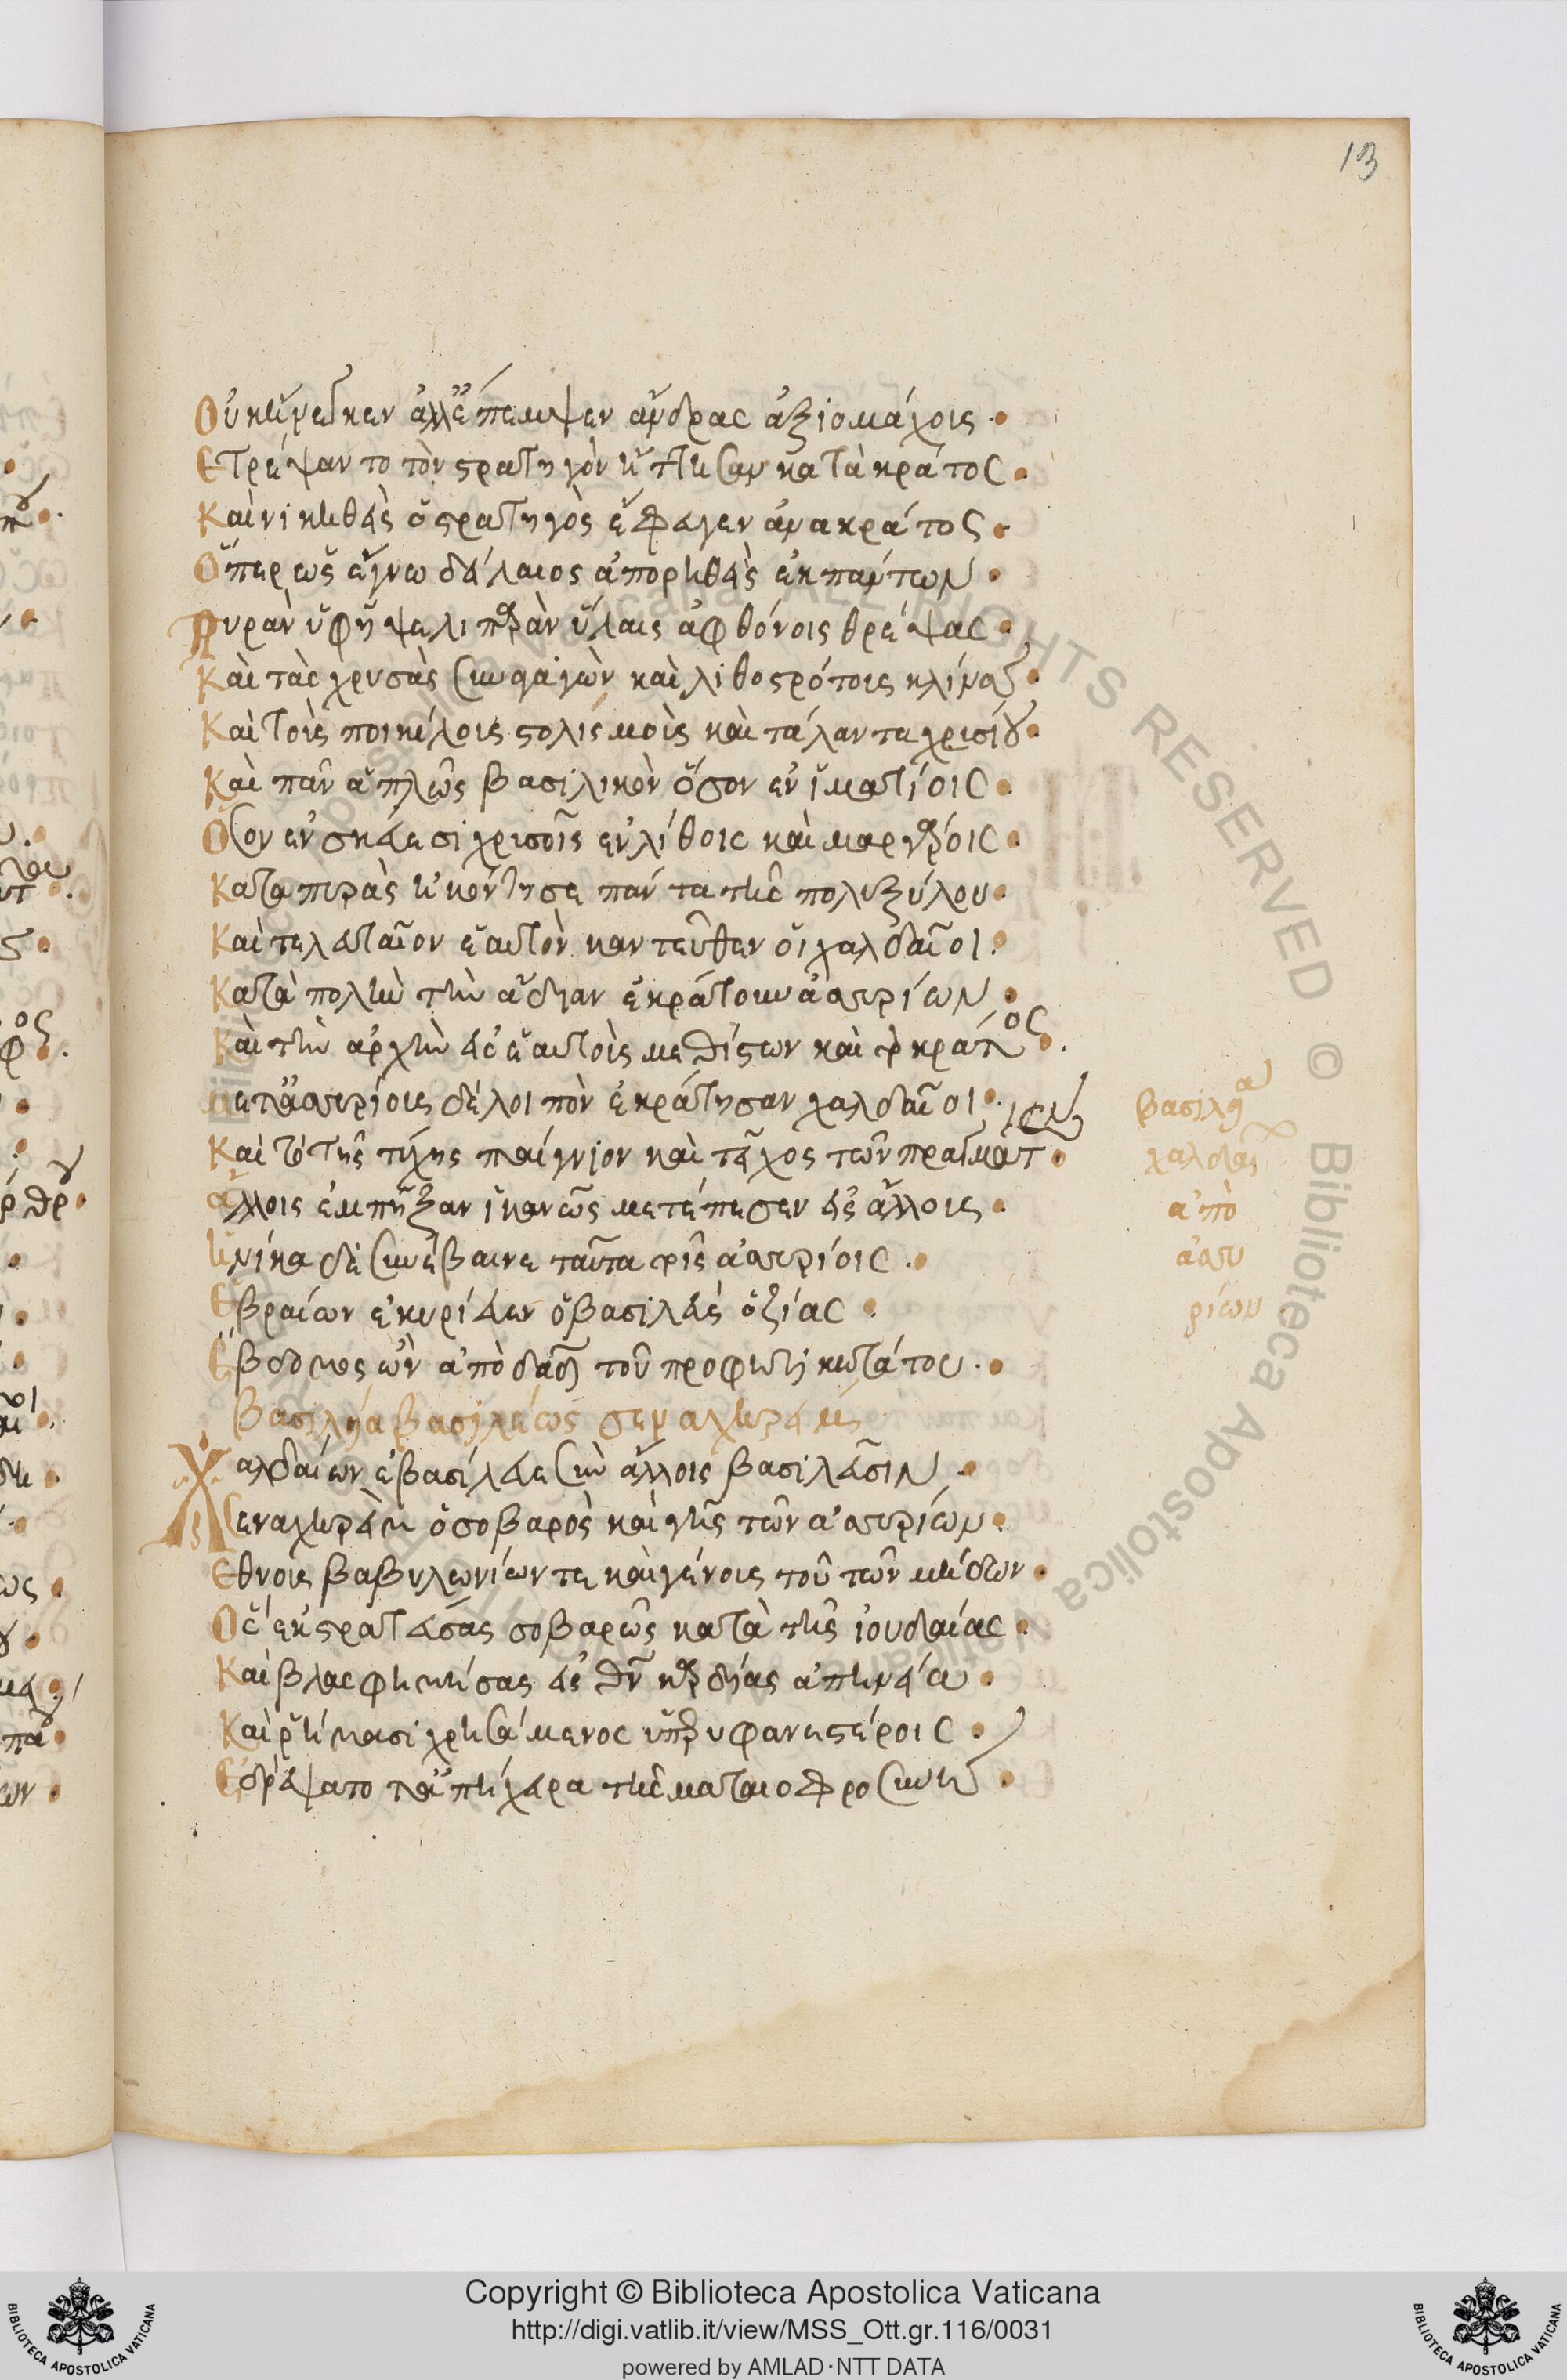 13
Οὐκ ἤρεσκεν ἀλλ ἔπεμψεν ἄνδρας ἀξιομάχοις
Ετρέψαν το τὸν στρατηγὸν ἥττησαν κατὰ κράτος
Καὶ νικηθεὶς ὁ στρατηγὸς ἔφευγεν ἀνακράτος
Ὅπερ ὡς ἔγνω δείλαιος ἀπορηθεὶς ἐκ πάντων
Πυρὰν ὑφῆψε λιπαρὰν ὕλαις ἀφθόνοις θρέψας
Καὶ τὰς χρυσὰς συναγαγὼν καὶ λιθοστρότοις κλίνας
Καὶ τοῖς ποικίλοις στολισμοῖς καὶ τάλαντα χρισίου
Καὶ πᾶν ἁπλῶς βασιλικὸν ὅσον ἐν ἱματίοις
Οσον ἐν σκεύεσι χρισοῖς ἐν λίθοις καὶ μαργάροις
Κατα πυρὰς ἠκόντησε πάντα τῆς πολυξύλου
Καὶ τελευταῖον ἑαυτὸν καντεῦθεν οἱ χαλδαῖοι
Κατὰ πολὺ τὴν ἄδειαν ἐκράτουν ἀσυρίων
Καὶ τὴν ἀρχὴν εἰς ἑαυτοῖς μεθίστων καὶ τὸ κράτος
μετ ἀσυρίοις δὲ λοιπὸν ἐκράτησαν χαλδαῖοι
Καὶ τὸ τῆς τύχης παίγνιον καὶ τεῖχος τῶν πραγμάτων
ἄλλοις ἐμπῆξαν ἱκανῶς μετέπεσεν εἰς ἄλλοις
Ηνίκα δὲ συνέβαινε ταῦτα τοῖς ἀσυρίοις
Εβραίων ἐκυρίευεν ὁ βασιλεὺς ὀζίας
Εβδομος ὢν ἀπὸ δαδ τοῦ προφητικωτάτου
Βασιλήα βασιλέως σεναχηρείμ
Χαλδαίων ἐβασίλευε σὺν ἄλλοις βασιλεῦσιν
Σεναχηρεὶμ ὁ σοβαρὸς καὶ γῆς τῶν ἀσυρίων
Εθνοις βαβυλωνίων τε καὶ γένοις τοῦ τῶν μήδων
Ος ἐκστρατεύσας σοβαρῶς κατὰ τῆς ἰουδαίας
Καὶ βλασφημήσας εἰς θν καρδίας ἀπηνεία
Καὶ ῥήμασι χρησάμενος ὑπερυφανεστέροις
Εδρέψατο τἀπήχειρα τῆς ματαιοφροσύνης
βασιληα
χαλδαι
ἀπὸ
ἀσυ
ρίων
Copyright © Biblioteca Apostolica Vaticana
http://digi.vatlib.it/view/MSS_Ott.gr.116/0031
powered by AMLAD·NTT DATA
BIBLIOTECA APOSTOLICA VATICANA
BIBLIOTECA APOSTOLICA VATICANA